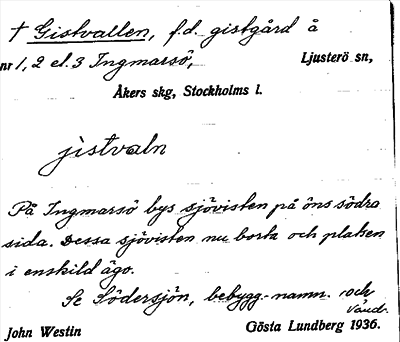 † Gistvallen, f.d. gistgård å
nr 1, 2 el. 3 Ingmarsö, Ljusterö sn,
Åkers skg, Stockholms l.
jistvaln
På Ingmarsö bys sjövisten på öns södra
sida. Dessa sjövisten nu borta och platsen
i enskild ägo.
Se Södersjön, bebygg.-namn. och
vänd.
John Westin Gösta Lundberg 1936.